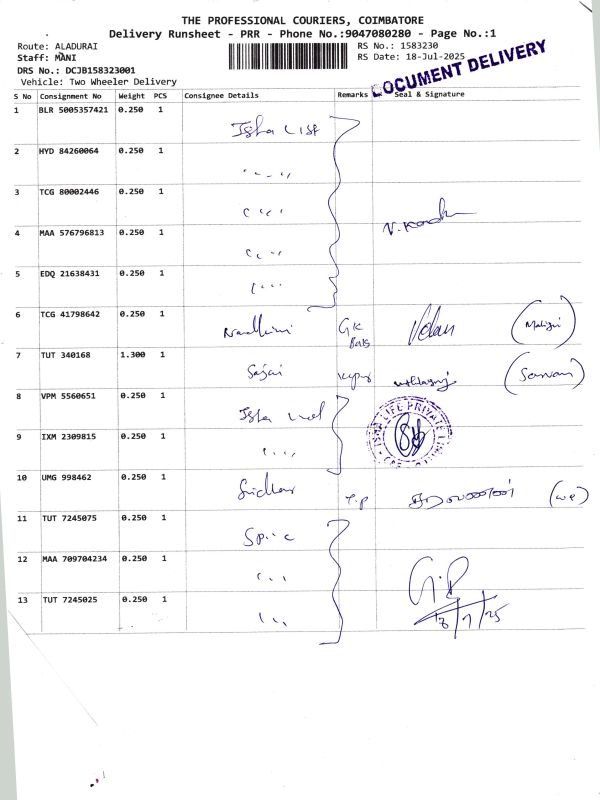 THE PROFESSIONAL COURIERS, COIMBATORE
Delivery Runsheet - PRR - Phone No.:9047080280 - Page No.:1
Route: ALADURAI
Staff: MANI
DRS No.: DCJB158323001
Vehicle: Two Wheeler Delivery
RS No.: 1583230
RS Date: 18-Jul-2025
DOCUMENT DELIVERY
S No Consignment No Weight PCS Consignee Details Remarks Seal & Signature
1 BLR 5005357421 0.250 1 Isha
2 HYD 84260064 0.250 1
3 TCG 80002446 0.250 1
4 MAA 576796813 0.250 1
5 EDQ 21638431 0.250 1
6 TCG 41798642 0.250 1 GK
7 TUT 340168 1.300 1
8 VPM 5560651 0.250 1 Isha
ISHA LIFE PRIVATE
9 IXM 2309815 0.250 1
10 UMG 998462 0.250 1 Sridhar
11 TUT 7245075 0.250 1
12 MAA 709704234 0.250 1
13 TUT 7245025 0.250 1
18/7/25